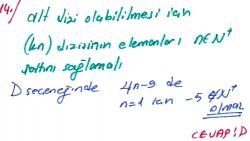 14./ alt dizi olabilmesi için
(kn) dizisinin elemanları n∈N⁺
şartını sağlamalı
D seçeneğinde 4n-9 de
n=1 için -5 ∉N⁺
olmaz
CEVAP: D